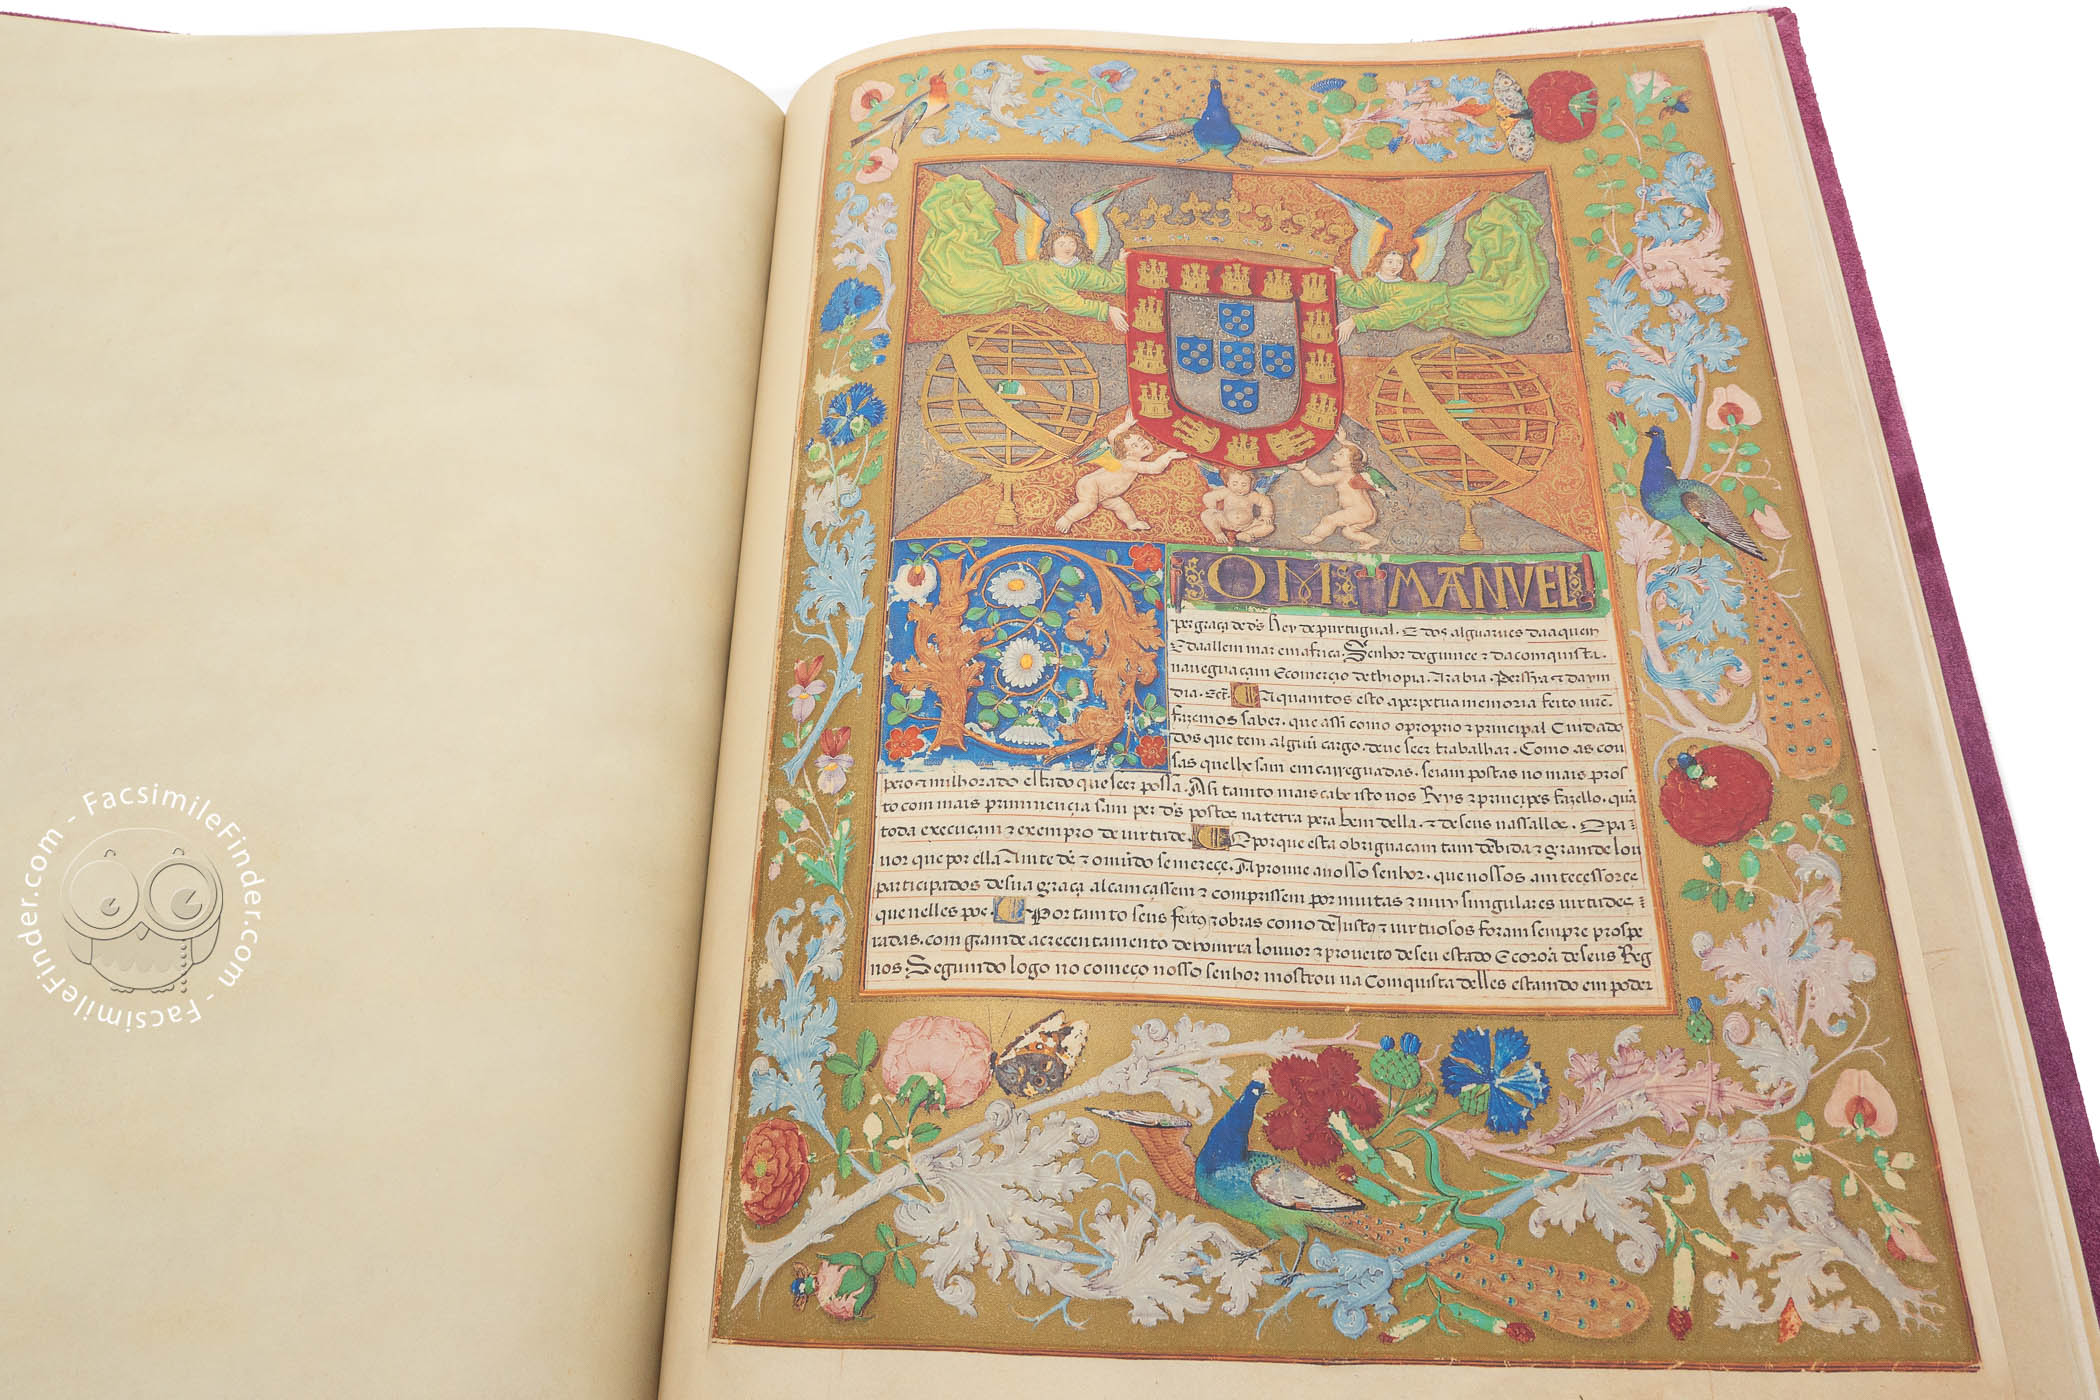 FacsimileFinder.com - FacsimileFinder.com -
DOM MANVEL
per graça de ds Rey de purtugual. E dos alguarues daaquem
E daallem mar em africa. Senhor de guinee τ da comquista.
nauegaçam E comerçio dethiopia. Arabia. Perssya τ da ym
dia. Ect̃. A quamtos esto a perpetua memoria feito virẽ.
fazemos saber. que assi como o proprio τ principal Cuidado
dos que tem alguũ cargo. deue seer trabalhar. Como as cou
sas que lhe sam emcarreguadas. seiam postas no mais pros
pero τ milhorado estado que seer possa. Asi tamto mais cabe isto nos Reys τ primçipes fazello. quã
to com mais priminençia sam per ds postos na terra pera bem della. τ de seus vassallos. O pa
toda execuçam τ exempro de uirtude. E por que esta obriguaçam tam deuida τ gramde lou
uor que por ella Amte ds τ o mũdo se mereçe. Aprouue a nosso senhor. que nossos amtecessores
participados de sua graça alcamçassem τ comprissem por muitas τ muy singulares virtudes
que nelles pos. Por tamto seus feitos τ obras como de Justos τ uirtuosos foram sempre prospe
radas. com gramde acrecentamento de homrra louuor τ proueito de seu estado E coroa de seus Reg
nos. Segumdo logo no começo nosso senhor mostrou na Comquista delles estamdo em poder